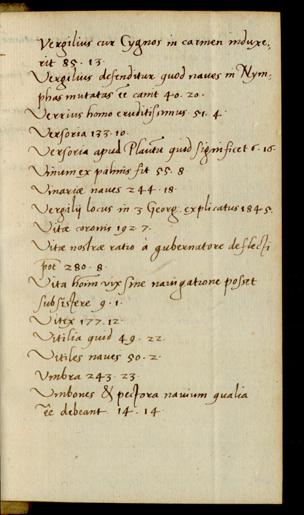 Vergilius cur Cygnos in carmen induxe,
rit 85. 13.
Vergilius defenditur quod naves in Nym,
phas mutatas eē canit 40. 20.
Verrius homo eruditissimus 51. 4.
Versoria 133. 10.
Versoria apud Plautū quid significet 6. 16.
Vinum ex palmis fit 55. 8
Vinariæ naves 244. 18.
Vergilij locus in 3 Georg. explicatus 184 5.
Vitæ coronis 192 7.
Vitæ nostræ ratio à gubernatore deflecti
pōt 280. 8.
Vita hoīm vix sine navigatione posset
subsistere 9. 1.
Vitex 177. 12.
Vitilia quid 49. 22.
Vitiles naves 50. 2.
Vmbra 243. 23
Vmbones & pectora navium qualia
eē debeant 14. 14